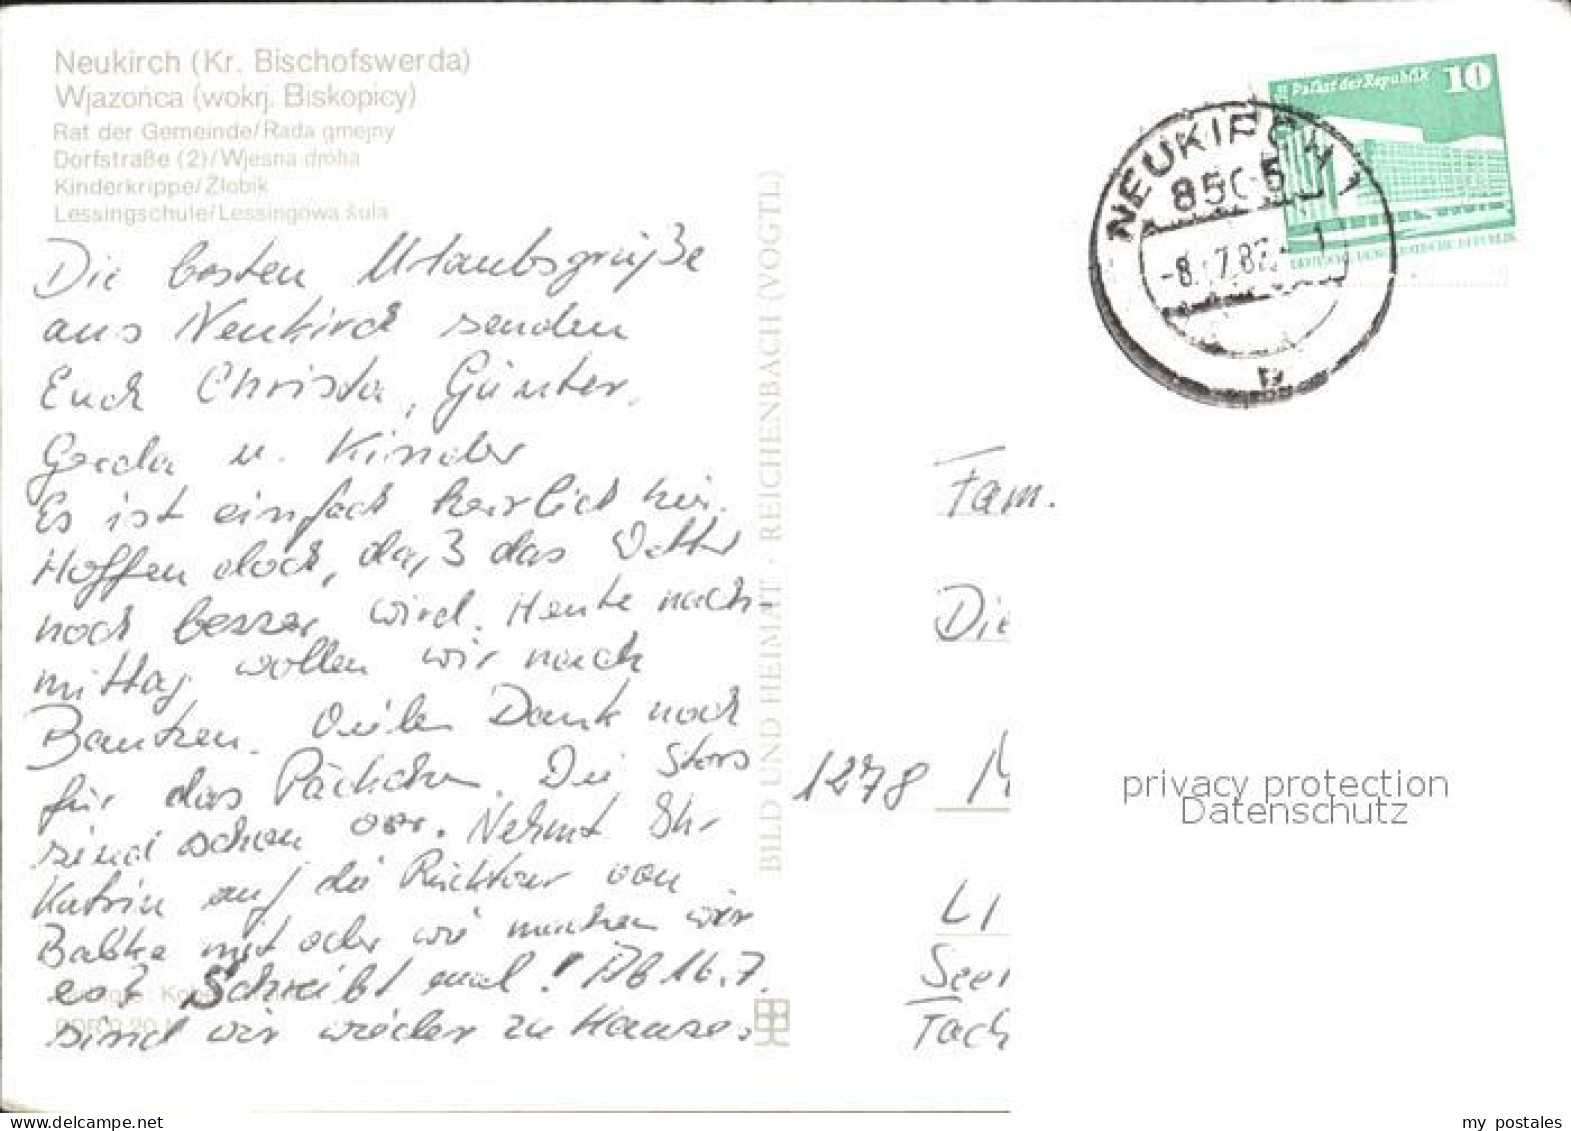 Neukirch (Kr. Bischofswerda)
Wjazońca (wokrj. Biskopicy)
Rat der Gemeinde/Rada gmejny
Dorfstraße (2)/Wjesna dróha
Kinderkrippe/Žlobik
Lessingschule/Lessingowa šula
Die besten Urlaubsgrüße
aus Neukirch senden
Euch Christa, Günter,
Gerda u. Kinder
Es ist einfach herrlich hier.
Hoffen doch, daß das Wetter
noch besser wird. Heute nach-
mittag wollen wir nach
Bautzen. Vielen Dank noch
für das Päckchen. Die
sind schon. Nehmt Ihr
Katrin auf die Rücktour von
mit oder wie machen wir
es? Schreibt mal! Ab 16.7.
sind wir wieder zu Hause.
BILD UND HEIMAT · REICHENBACH (VOGTL)
Palast der Republik 10
DEUTSCHE DEMOKRATISCHE REPUBLIK
NEUKIRCH 1
8505
-8.-7.82
b
Fam.
Die
1278 M
LI
See
Tach
privacy protection
Datenschutz
my_postales